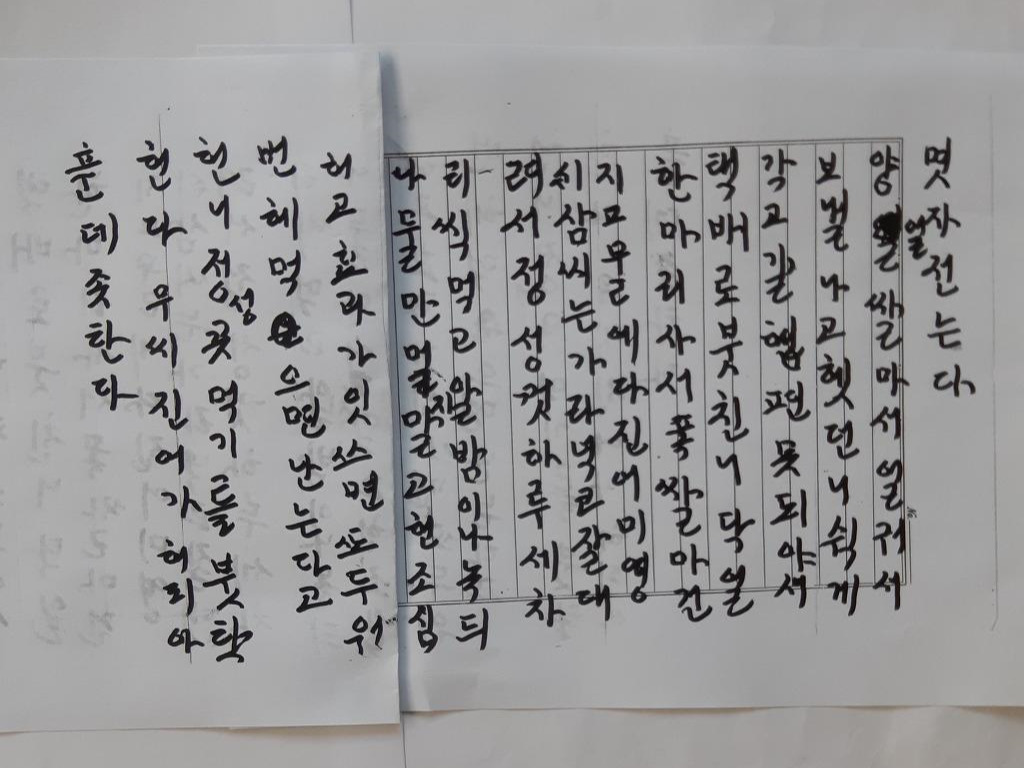 몃자전는다
양얼쌀마서얼궈서
보낼나고헷던니쉭게
각고갈햄편못되야서
택배로붓친니닥얼
한마리사서푹쌀마건
지모물에다진어미영
시삼씨는가라녁코잘대
려서정성것하루세차
리씩먹고알밤이나녹듸
나물만먹지말고현조심
허고효과가잇쓰면또두워
번헤먹으면난는다고
헌니정성곳먹기를붓탁
헌다우씨진어가허리아
푼데좃탄다